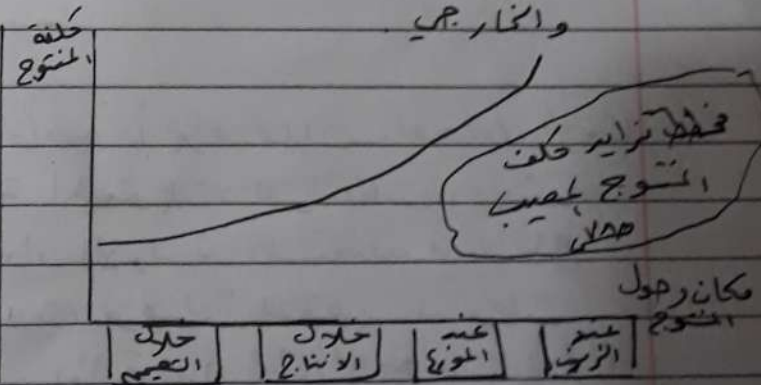 والخارجي
كلفة
المنتوج
مخطط تزايد كلف
المنتوج المعيب
مكان وصول
المنتوج
خلال
التصميم
خلال
الانتاج
عند
الموزع
عند
الزبون